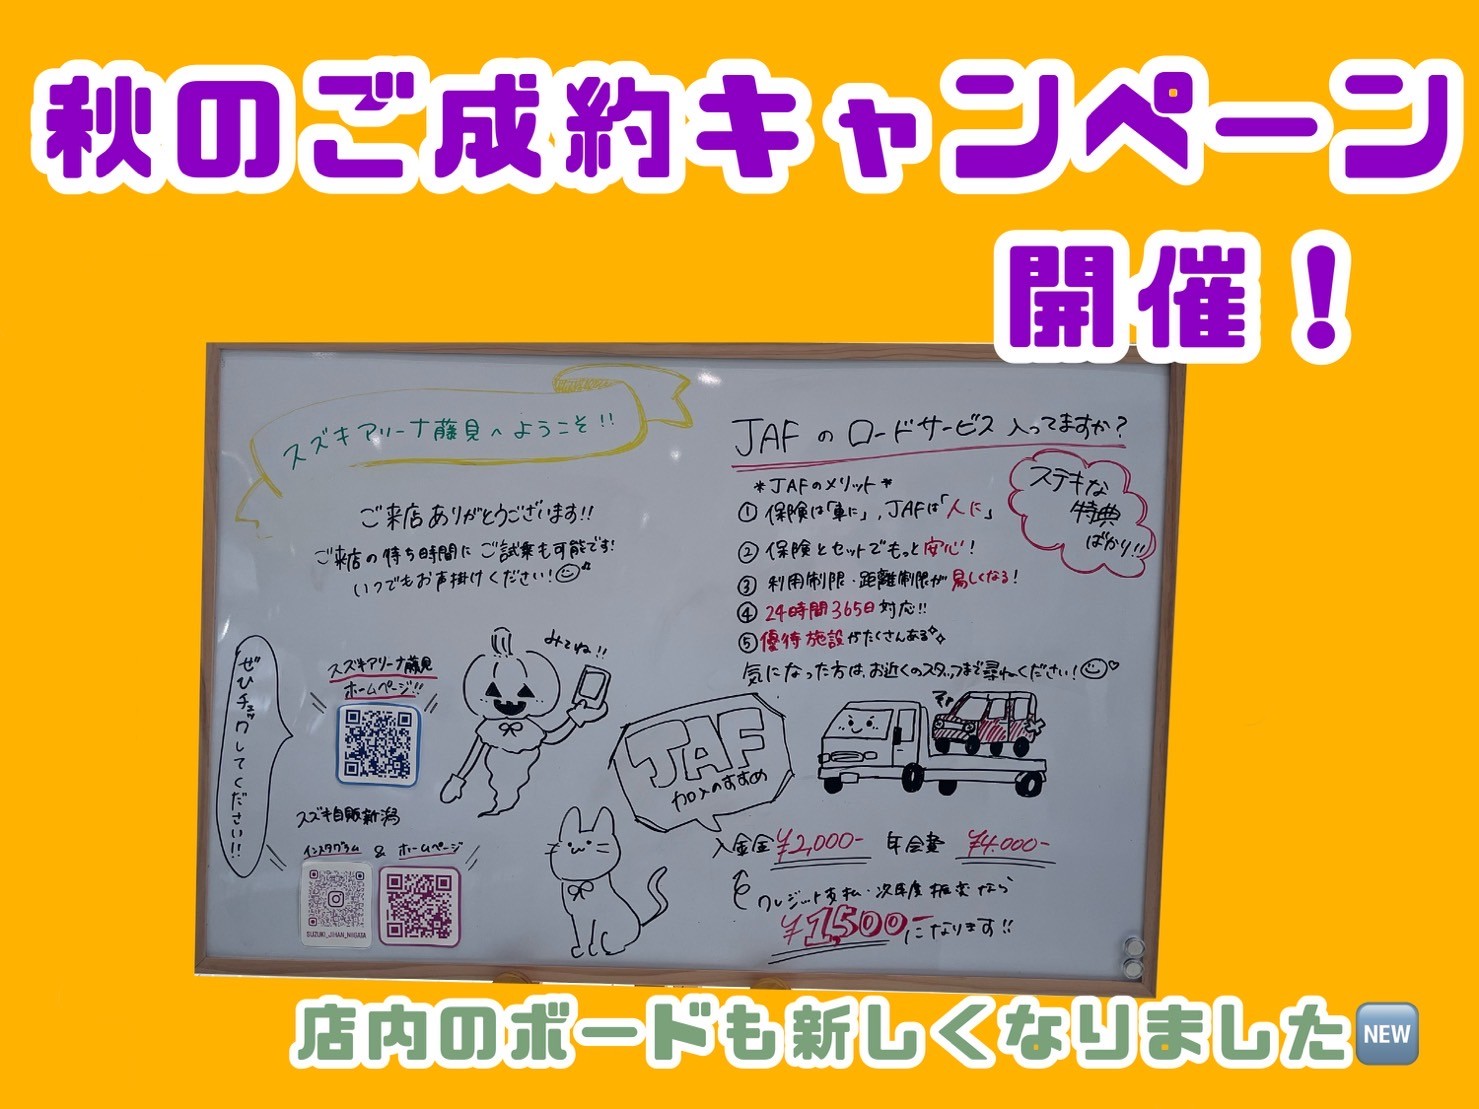 秋のご成約キャンペーン
開催！
スズキアリーナ藤見へようこそ!!
ご来店ありがとうございます!!
ご来店の待ち時間にご試乗も可能です!
いつでもお声掛けください!
ぜひチェックしてください!!
スズキアリーナ藤見
ホームページ!!
みてね!!
スズキ自販新潟
インスタグラム & ホームページ
SUZUKI_JIHAN_NIIGATA
JAFのロードサービス入ってますか?
ステキな
特典
ばかり!!
*JAFのメリット*
① 保険は「車に」, JAFは「人に」
② 保険とセットでもっと安心!
③ 利用制限・距離制限が易しくなる!
④ 24時間365日対応!!
⑤ 優待施設がたくさんある
気になった方は、お近くのスタッフまで尋ねください!
JAF
加入のすすめ
入会金 ¥2,000- 年会費 ¥4,000-
クレジット支払・次年度振替なら
¥1,500-になります!!
店内のボードも新しくなりました🆕